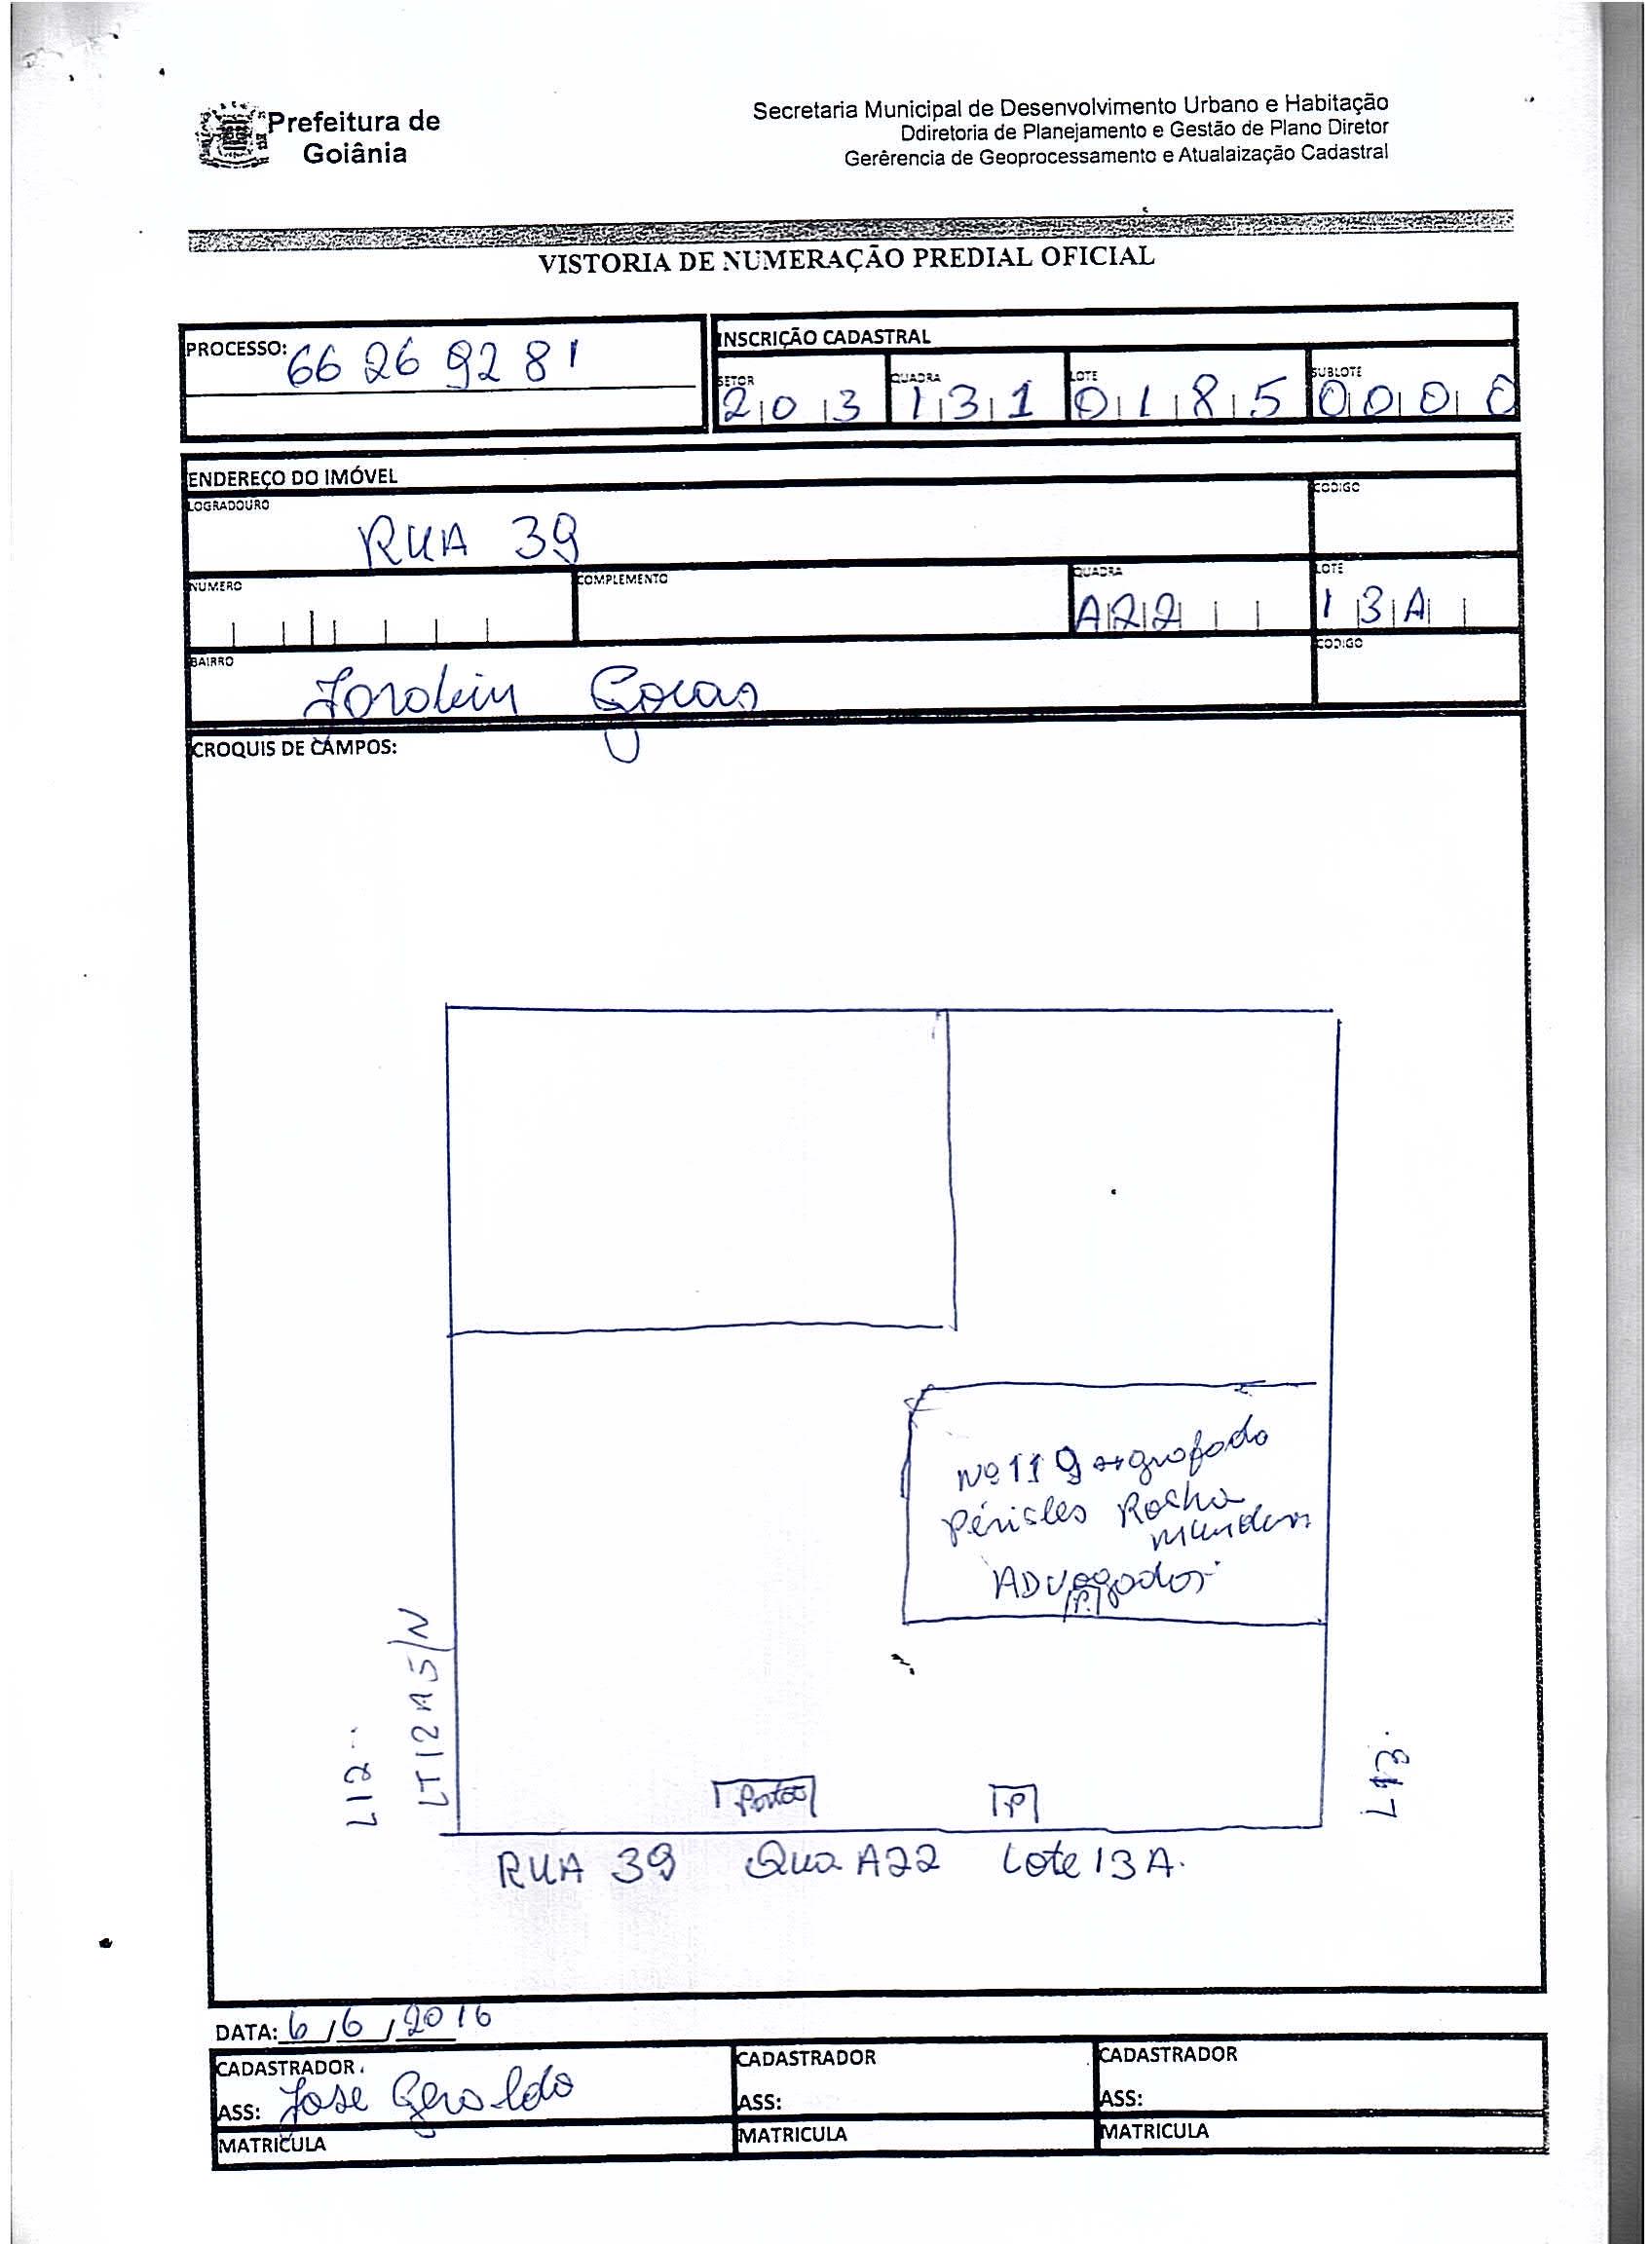 Prefeitura de
Goiânia
Secretaria Municipal de Desenvolvimento Urbano e Habitação
Ddiretoria de Planejamento e Gestão de Plano Diretor
Gerêrencia de Geoprocessamento e Atualaização Cadastral
VISTORIA DE NUMERAÇÃO PREDIAL OFICIAL
PROCESSO: 66269281
INSCRIÇÃO CADASTRAL
SETOR QUADRA LOTE SUBLOTE
203 131 0185 0000
ENDEREÇO DO IMÓVEL
LOGRADOURO CODIGO
RUA 39
NUMERO COMPLEMENTO QUADRA LOTE
A22 13A
BAIRRO CODIGO
Goias
CROQUIS DE CAMPOS:
Nº 119
Péricles Rocha
Advogados
P.
LT 12A S/N
L12
L13
Portão P
RUA 39 Qua A22 Lote 13A.
DATA: 6/6/2016
CADASTRADOR CADASTRADOR CADASTRADOR
ASS: Jose Geraldo ASS: ASS:
MATRICULA MATRICULA MATRICULA